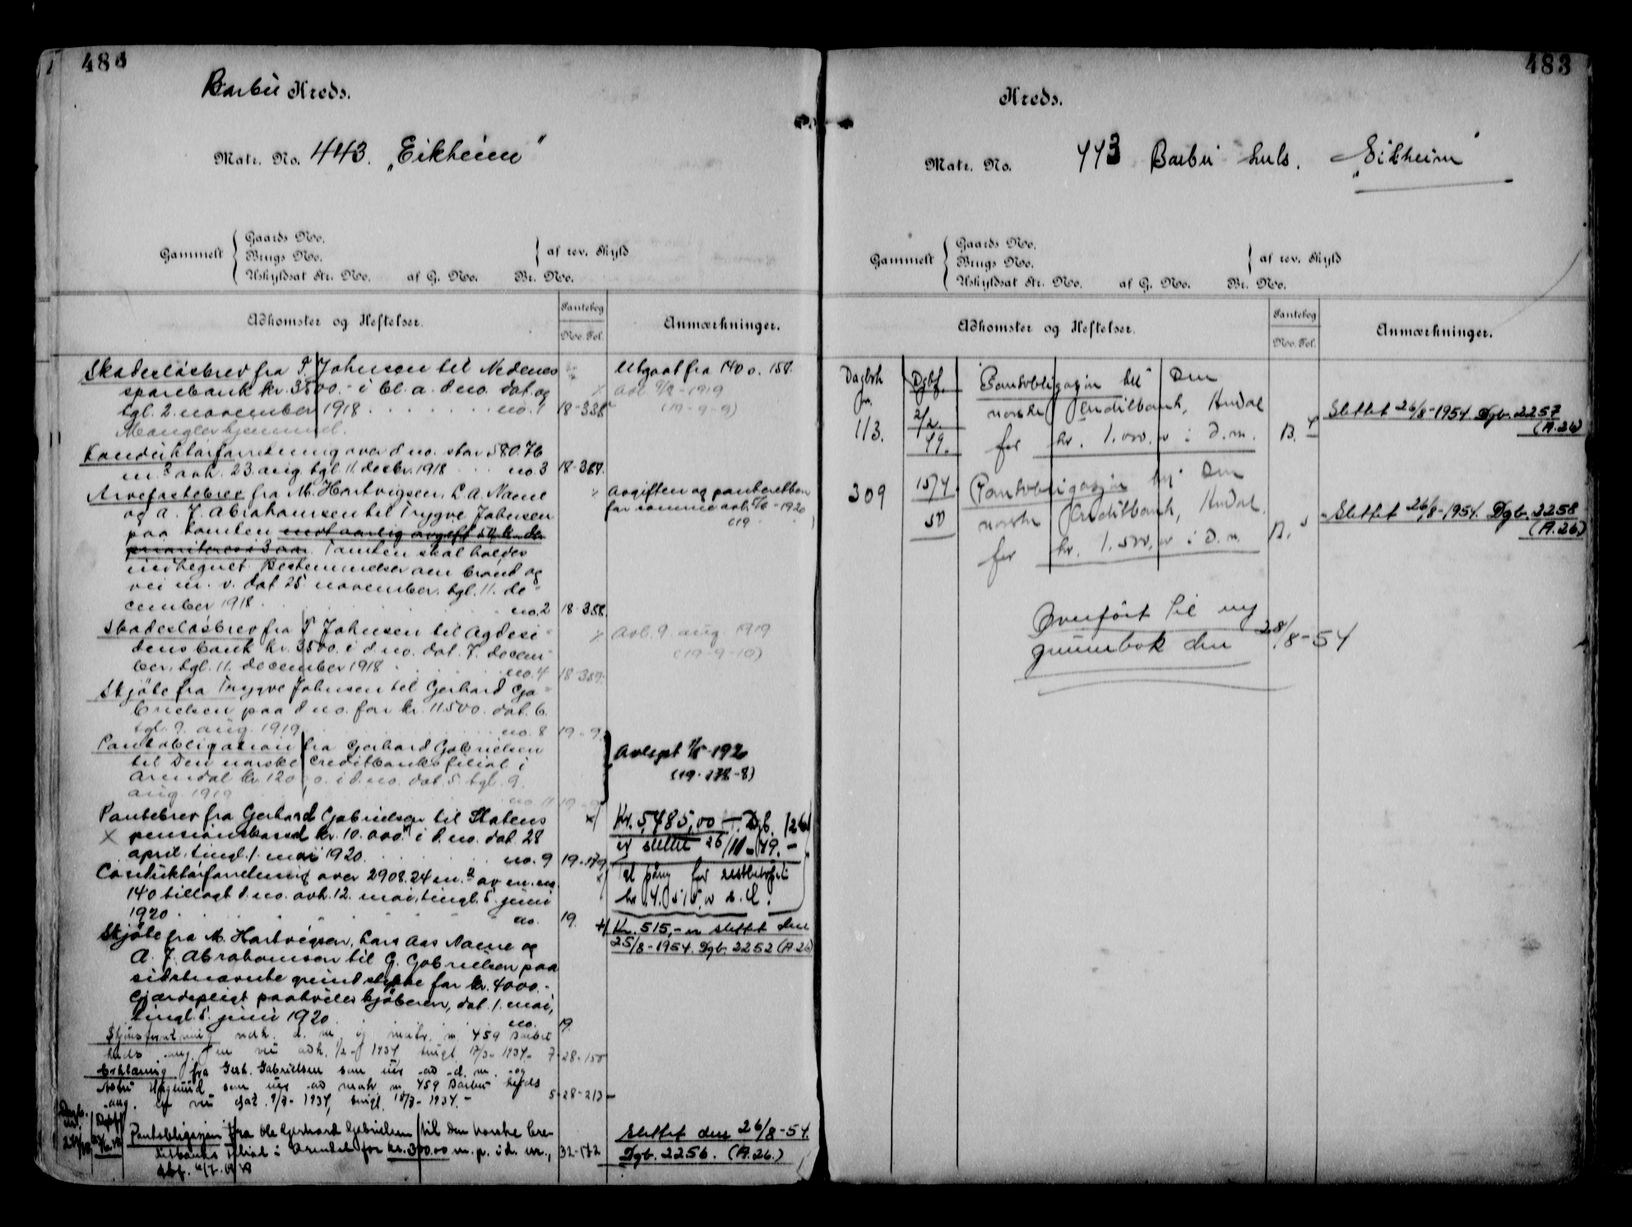 Barbu Kreds.
Matr. No. 443. „Eikheim"
Gammelt
Gaards No.
Brugs No.
Uskyldsat Str. No. af G. No. Br. No.
af rev. Skyld
Adkomster og Heftelser.
Pantebog
No. Fol.
Anmærkninger.
Skadesløsbrev fra T. Johnsen til Nedenes
sparebank kr. 3500.- i bl. a. d. no. dat. og
tgl. 2. november 1918 no. 1 18-338
Mangler hjemmel.
Utgaat fra 140 o. 158.
avl. 9/8-1919
(19-9-9)
Konduktørforretning over d. no. stor 580.76
m.² avh. 23. aug. tgl. 11. decbr. 1918 no 3 18-358.
Arvefæstebrev fra M. Hartvigsen, L. A. Næme
og A. J. Abrahamsen til Trygve Johnsen
paa tomten
Tomten skal holdes
indhegnet. Bestemmelser om brønd og
vei m. v. dat. 25 november, tgl. 11. de-
cember 1918 no. 2 18-358.
Avgiften og panteretten
for samme avl. 1920
(19
Skadesløsbrev fra T. Johnsen til Agdesi-
dens bank kr. 3500. i d. no. dat. 7. decem-
ber, tgl. 11. december 1918 no. 4 18-359.
Avl. 9. aug. 1919
(19-9-10)
Skjøte fra Trygve Johnsen til Gerhard Ga-
brielsen paa d. no. for kr. 11500. dat. 6.
tgl. 9. aug. 1919 no. 8 19-9.
Pantobligation fra Gerhard Gabrielsen
til Den norske Creditbanks filial i
Arendal kr. 12000. i d. no. dat. 5. tgl. 9.
aug. 1919 no. 11 19-9
Avlyst 1/5-1920
(19-178-8)
Pantebrev fra Gerhard Gabrielsen til Statens
pensionskasse kr. 10.000.- i d. no. dat. 28
april, tingl. 1. mai 1920 no. 9 19-179
Kr. 5485,00
er slettet 26/11-49.-
Konduktørforretning over 2908.24 m.² av m. no.
140 tillagt d. no. avh. 12. mai, tingl. 5. juni
1920 no. 19.
for restbeløpet
Kr. 515,- er slettet den
25/8-1954. Dgb. 2252 (A.26)
Skjøte fra M. Hartvigsen, Lars Aas Næme og
A. J. Abrahamsen til G. Gabrielsen paa
sidstnævnte grundstykke for kr. 4000.-
Gjærdepligt paahviler kjøberen, dat. 1. mai,
tingl. 5. juni 1920 no. 19.
Skjønsforretning avh. d. m. og matr. nr 459 Barbu
1934 tingl. 1934. 7-28-150
Erklæring fra Gerh. Gabrielsen som eier av d. m. og
som eier av matr. nr. 459 Barbu
ang. vei dat. 9/3-1934, tingl. 10/3-1934.- 5-28-213
Pantobligasjon fra Ole Gerhard Gabrielsen til Den norske Cre-
ditbanks filial i Arendal for kr. 3000.00 m. p. i d. m., 32-172
Slettet den 26/8-54.
Dgb. 2256. (A.26.)
483
Kreds.
Matr. No. 443 Barbu „Eikheim"
Gammelt
Gaards No.
Brugs No.
Uskyldsat Str. No. af G. No. Br. No.
af rev. Skyld
Adkomster og Heftelser.
Pantebog
No. Fol.
Anmærkninger.
Dagbok Dgbf. Pantobligasjon til Den
nr. 2/2 norske Creditbank, Arendal
113. 49. for kr. 1.000,00 i d.m. B.
Slettet 26/8-1954 Dgb. 2257
(A.26)
309 15/4 Pantobligasjon til Den
50 norske Creditbank, Arendal.
for kr. 1.500,00 i d.m. B.
Slettet 26/8-1954. Dgb. 2258
(A.26)
Overført til ny
grunnbok den 28/8-54